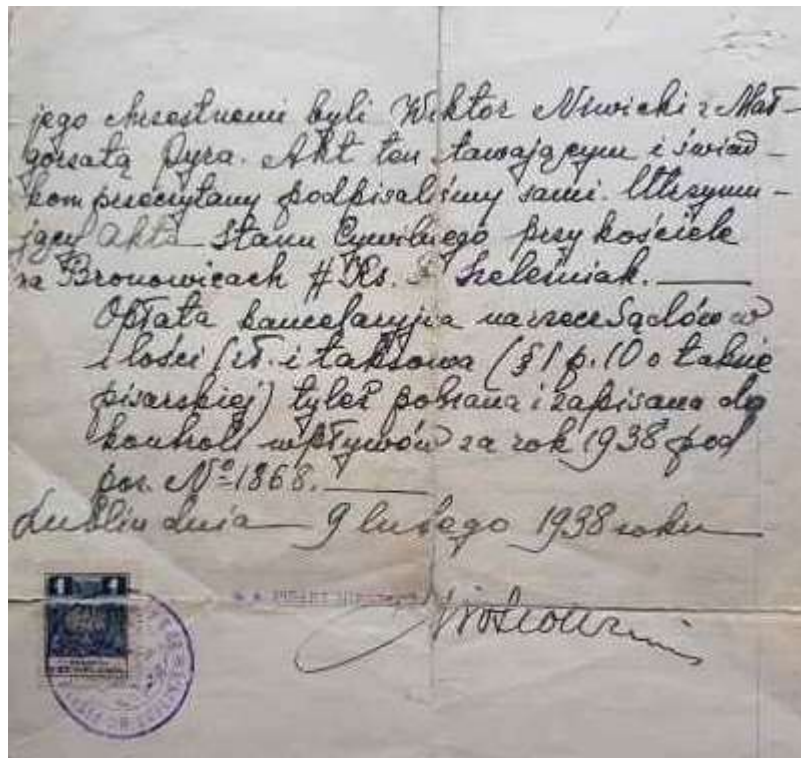 jego chrzestnemi byli Wiktor Niwicki z Mał-
gorzatą Pyra. Akt ten stawającym i świad-
kom przeczytany podpisaliśmy sami. Utrzymu-
jący Akta Stanu Cywilnego przy kościele
na Bronowicach # Ks. Szeleźniak.
Opłata kancelaryjna na rzecz Sądów w
ilości 1 zł. i taksowa (§ 1 p. 10 o taksie
pisarskiej) tyleż pobrana i zapisana do
kontroli wpływów za rok 1938 pod
poz. Nº 1868.
Lublin dnia 9 lutego 1938 roku
1 1
PISARZ